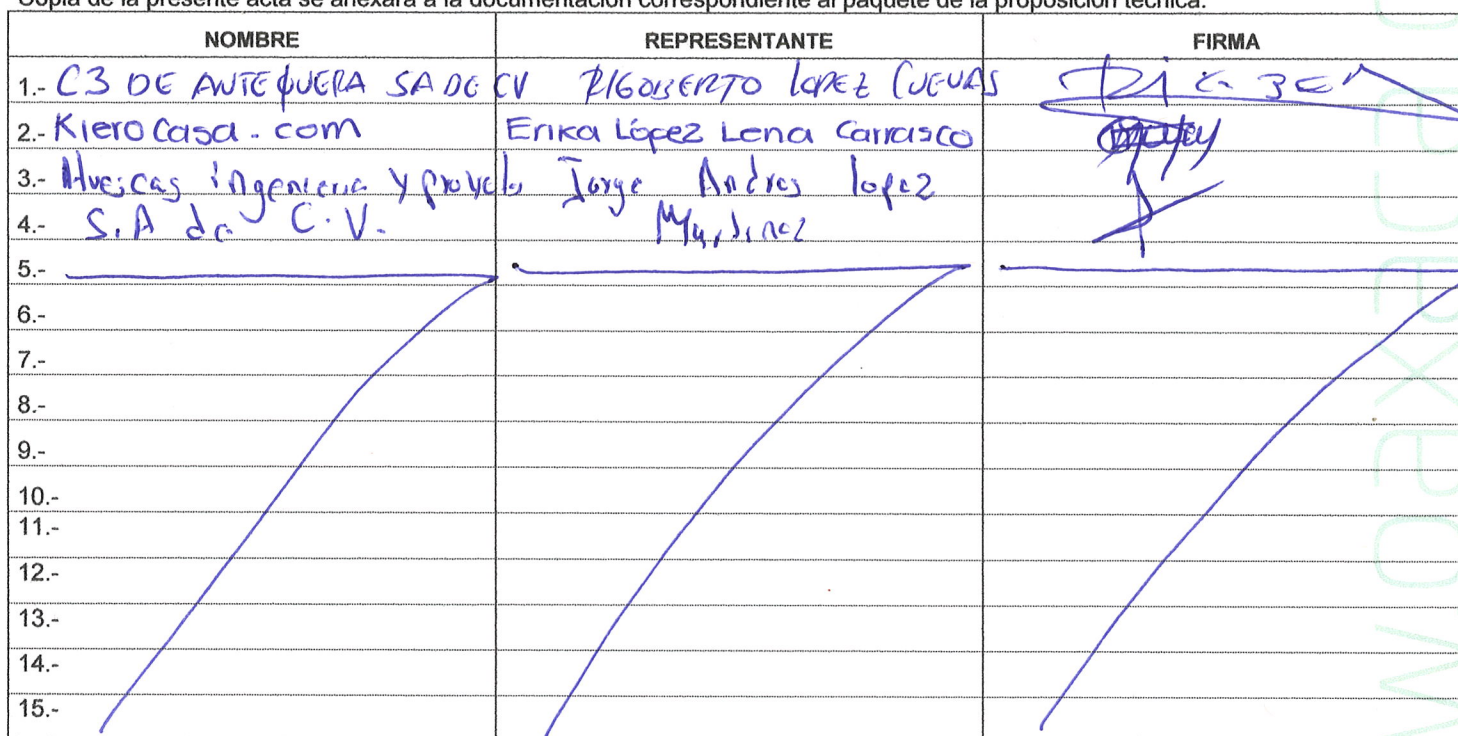 Copia de la presente acta se anexará a la documentación correspondiente al paquete de la proposición técnica.
NOMBRE REPRESENTANTE FIRMA
1.- C3 DE ANTEQUERA SA DE CV RIGOBERTO LOPEZ CUEVAS
2.- Kiero Casa.com Erika López Lena Carrasco
3.- ingenieria y proyecto Jorge Andres lopez
4.- S.A de C.V. Martinez
5.-
6.-
7.-
8.-
9.-
10.-
11.-
12.-
13.-
14.-
15.-